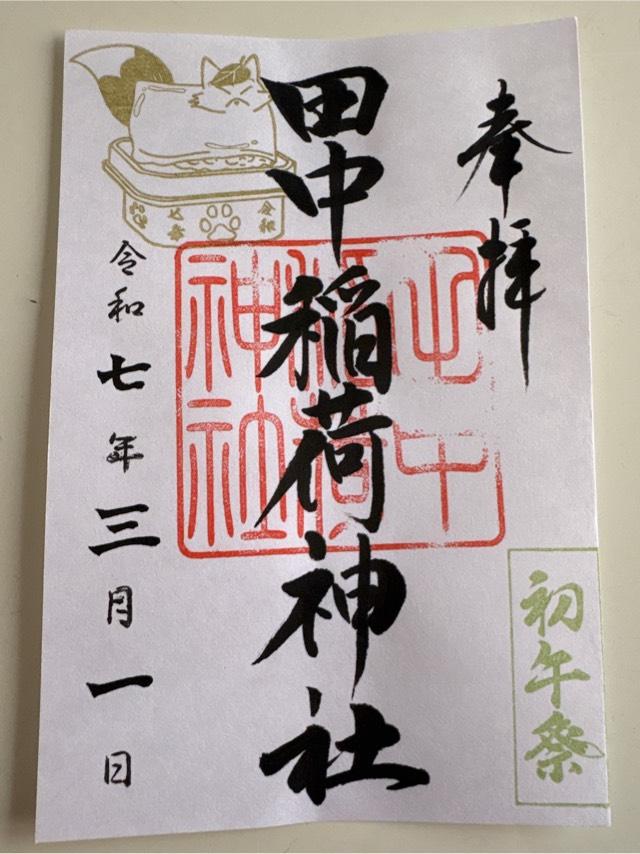 奉拝
初午祭
田中稲荷神社
神社
令和
七年
令和七年三月一日